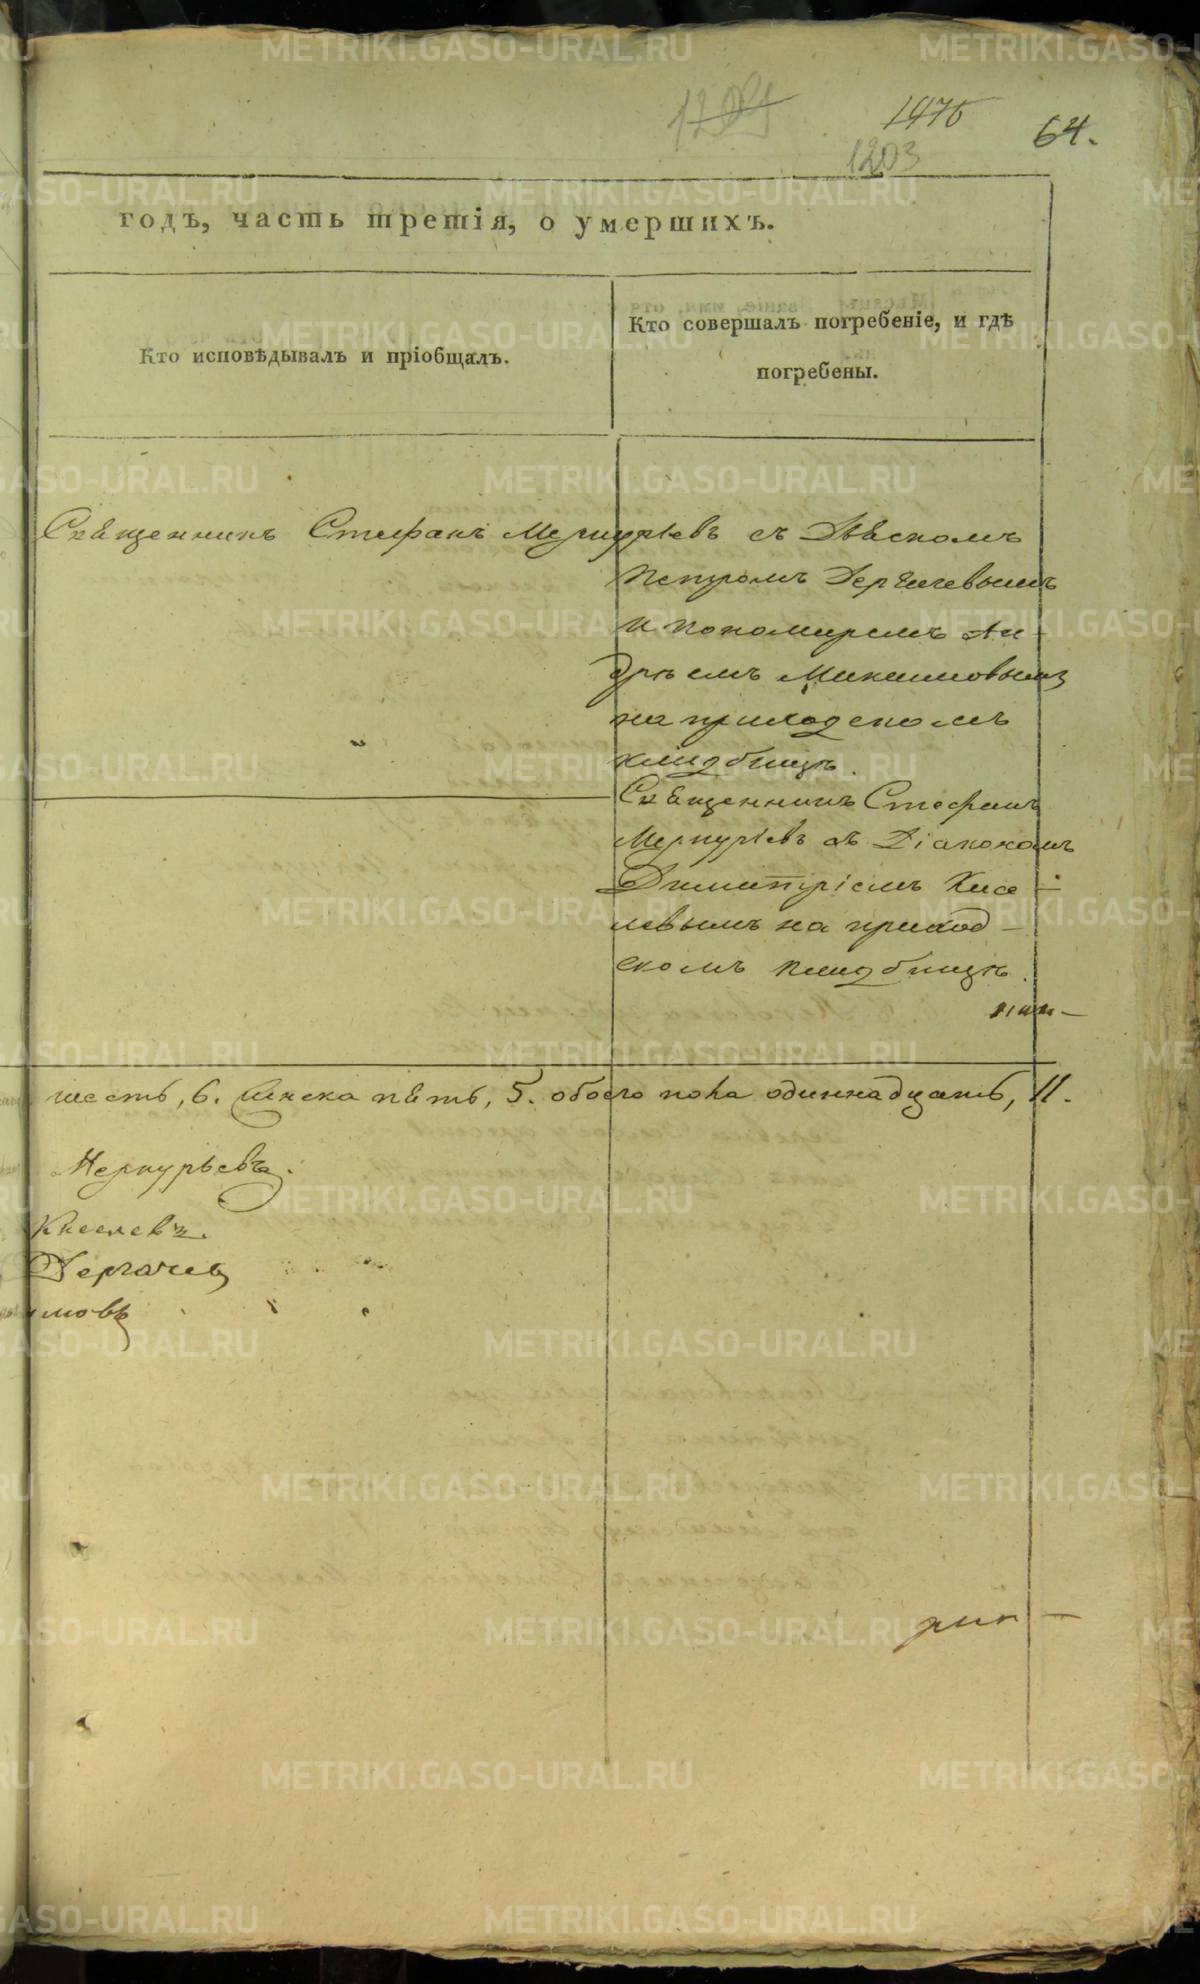 1204
1475
64.
1203
годъ, часть третія, о умершихъ.
Кто исповѣдывалъ и пріобщалъ.
Кто совершалъ погребеніе, и гдѣ
погребены.
Священникъ Стефанъ Меркурьевъ съ Дьячкомъ
Петромъ Дергачевымъ
и пономаремъ Ан-
дреемъ Максимовымъ
на приходскомъ
кладбищѣ.
Священникъ Стефанъ
Меркурьевъ съ Діакономъ
Димитріемъ Кисе-
левымъ на приход-
скомъ кладбищѣ.
шесть, 6. женска пять, 5. обоего пола одиннадцать, 11.
Меркурьевъ.
Киселевъ.
Дергачевъ
имовъ
METRIKI.GASO-URAL.RU